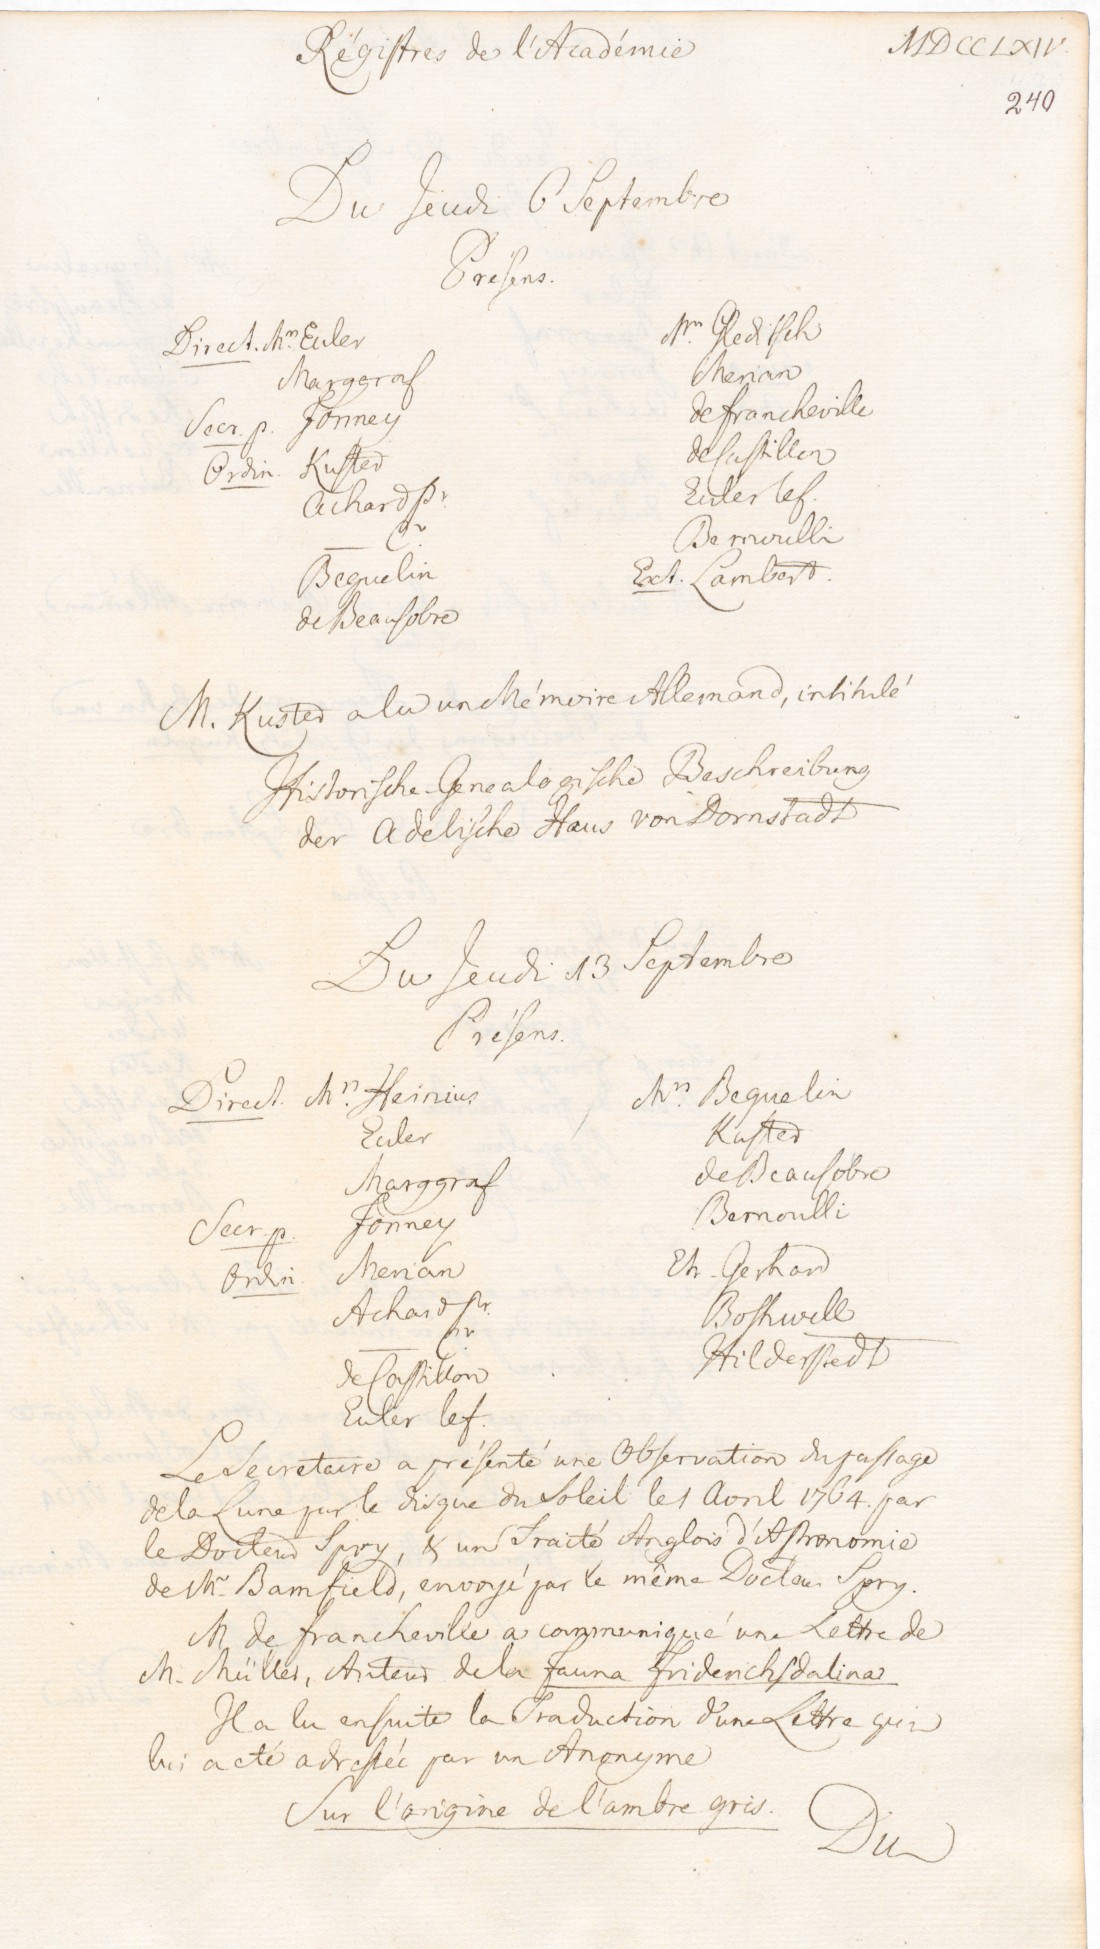 Régistres de l'Académie
MDCCLXIV.
240
Du Jeudi 6 Septembre
Présens.
Direct. Mrs. Euler
Marggraf
Secr. p. Formey
Ordin. Kuster
Achard Pr.
Beguelin
de Beausobre
Mrs. Gleditsch
Merian
de Francheville
de Castillon
Euler lef.
Bernoulli
Ext. Lambert.
M. Kuster a lu un Mémoire Allemand, intitulé
Historische-Genealogische Beschreibung
der Adelische Haus von Dornstadt
Du Jeudi 13 Septembre
Présens.
Direct. Mrs. Heinius
Euler
Marggraf
Secr. p. Formey
Ordin. Merian
Achard Pr.
de Castillon
Euler lef.
Mrs. Beguelin
Kuster
de Beausobre
Bernoulli
Etr. Gerhard
Boshwell
Hilderstedt
Le Sécretaire a présenté une Observation du passage
de la Lune sur le disque du Soleil le 1 Avril 1764. par
le Docteur Spry, & un Traité Anglois d'Astronomie
de Mr. Bamfield, envoyé par le même Docteur Spry.
M de Francheville a communiqué une Lettre de
M. Müller, Auteur de la Fauna Friderichsdalina
Il a lu ensuite la Traduction d'une Lettre qui
lui a eté adressée par un Anonyme
Sur l'origine de l'ambre gris.
Du